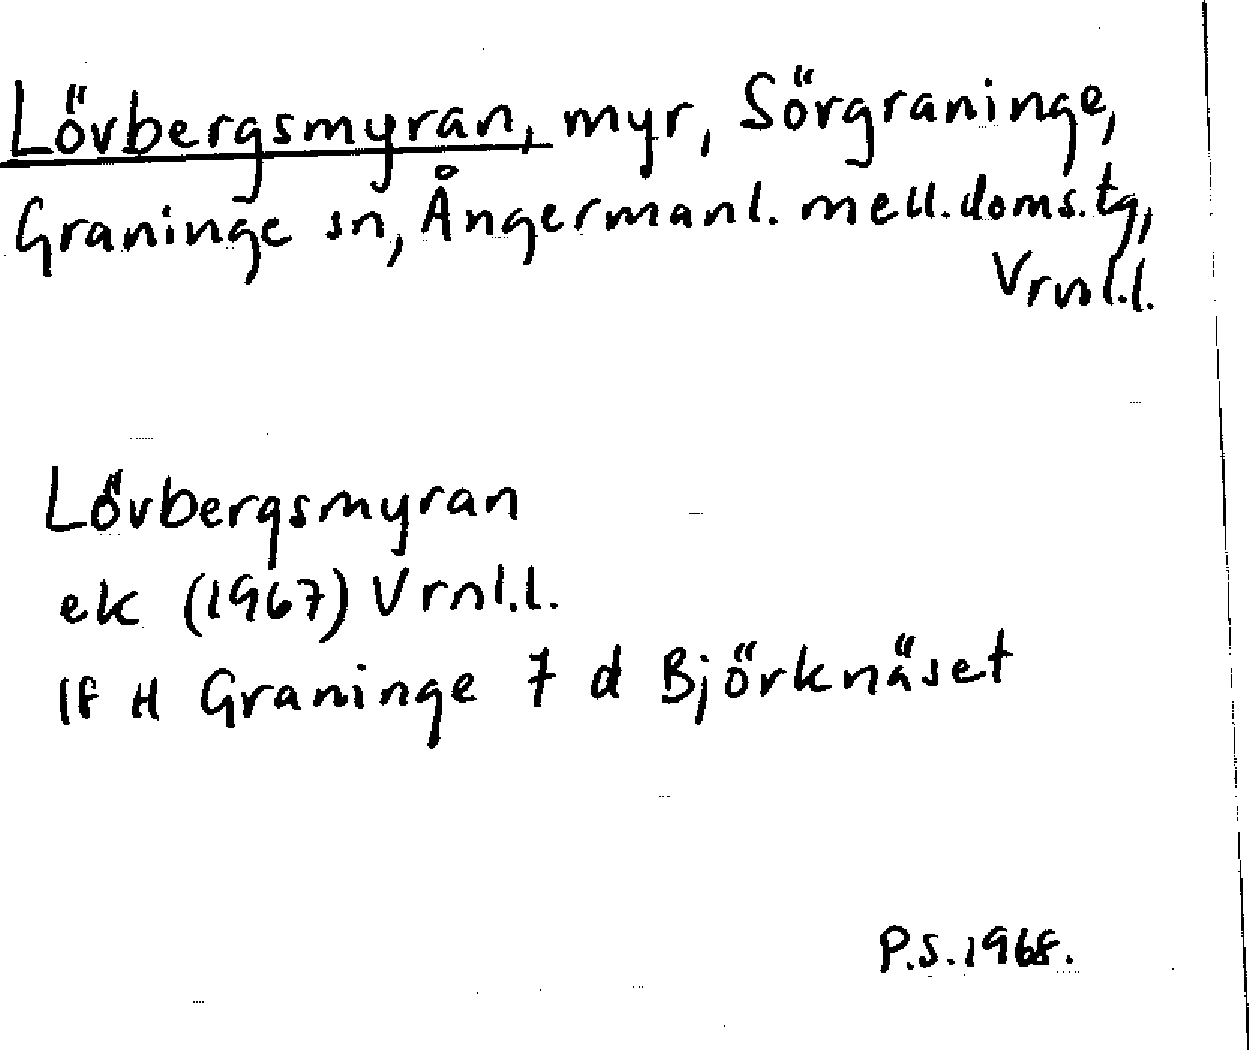 Lövbergsmyran, myr, Sörgraninge,
Graninge sn, Ångermanl. mell. doms. tg,
Vrnl.l.
Lövbergsmyran
ek (1967) Vrnl.l.
If H Graninge 7 d Björknäset
P.S. 1968.